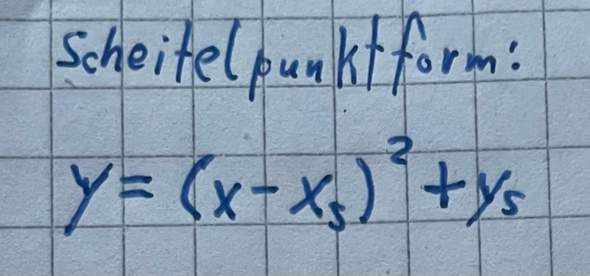 Scheitelpunktform:
y = (x - x_s)² + y_s